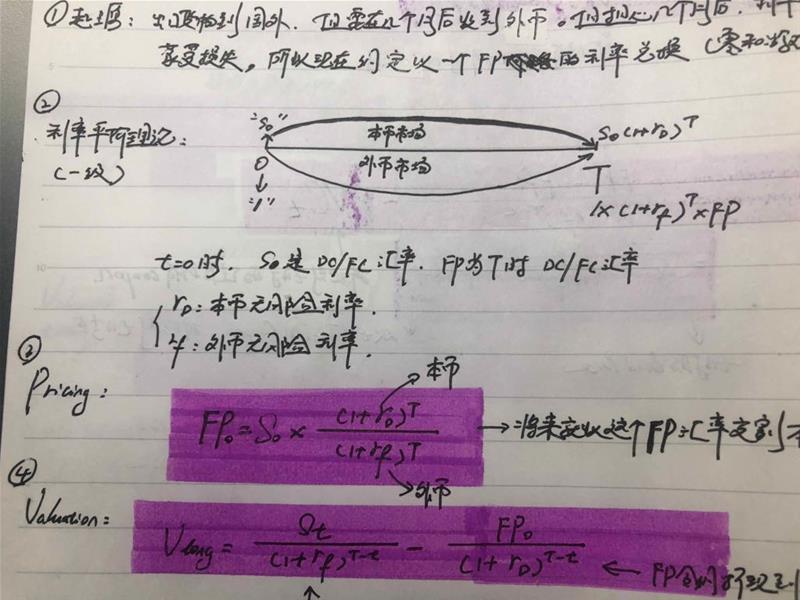 ① 起源: 出口货物到国外, 但需在几个月后收到外币。但担心几个月后, 利率
蒙受损失, 所以现在约定以一个FP的利率兑换 (零和游戏
②
利率平价理论:
(一级)
"S₀"
本币市场
S₀(1+r_D)^T
0
外币市场
T
"1"
1×(1+r_f)^T×FP
t=0时, S₀是 DC/FC 汇率. FP为T时 DC/FC汇率
r_D: 本币无风险利率.
r_f: 外币无风险利率.
③
Pricing:
本币
FP₀ = S₀ × (1+r_D)^T / (1+r_f)^T → 将来就以这个FP汇率交割
外币
④
Valuation:
V_long = S_t / (1+r_f)^(T-t) − FP₀ / (1+r_D)^(T-t) ← FP合约折现到